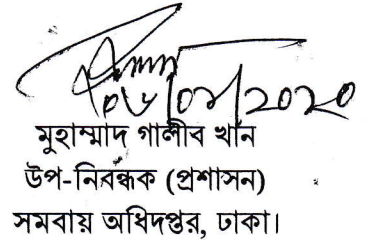 ০৬/০১/২০২০
মুহাম্মাদ গালীব খান
উপ-নিবন্ধক (প্রশাসন)
সমবায় অধিদপ্তর, ঢাকা।